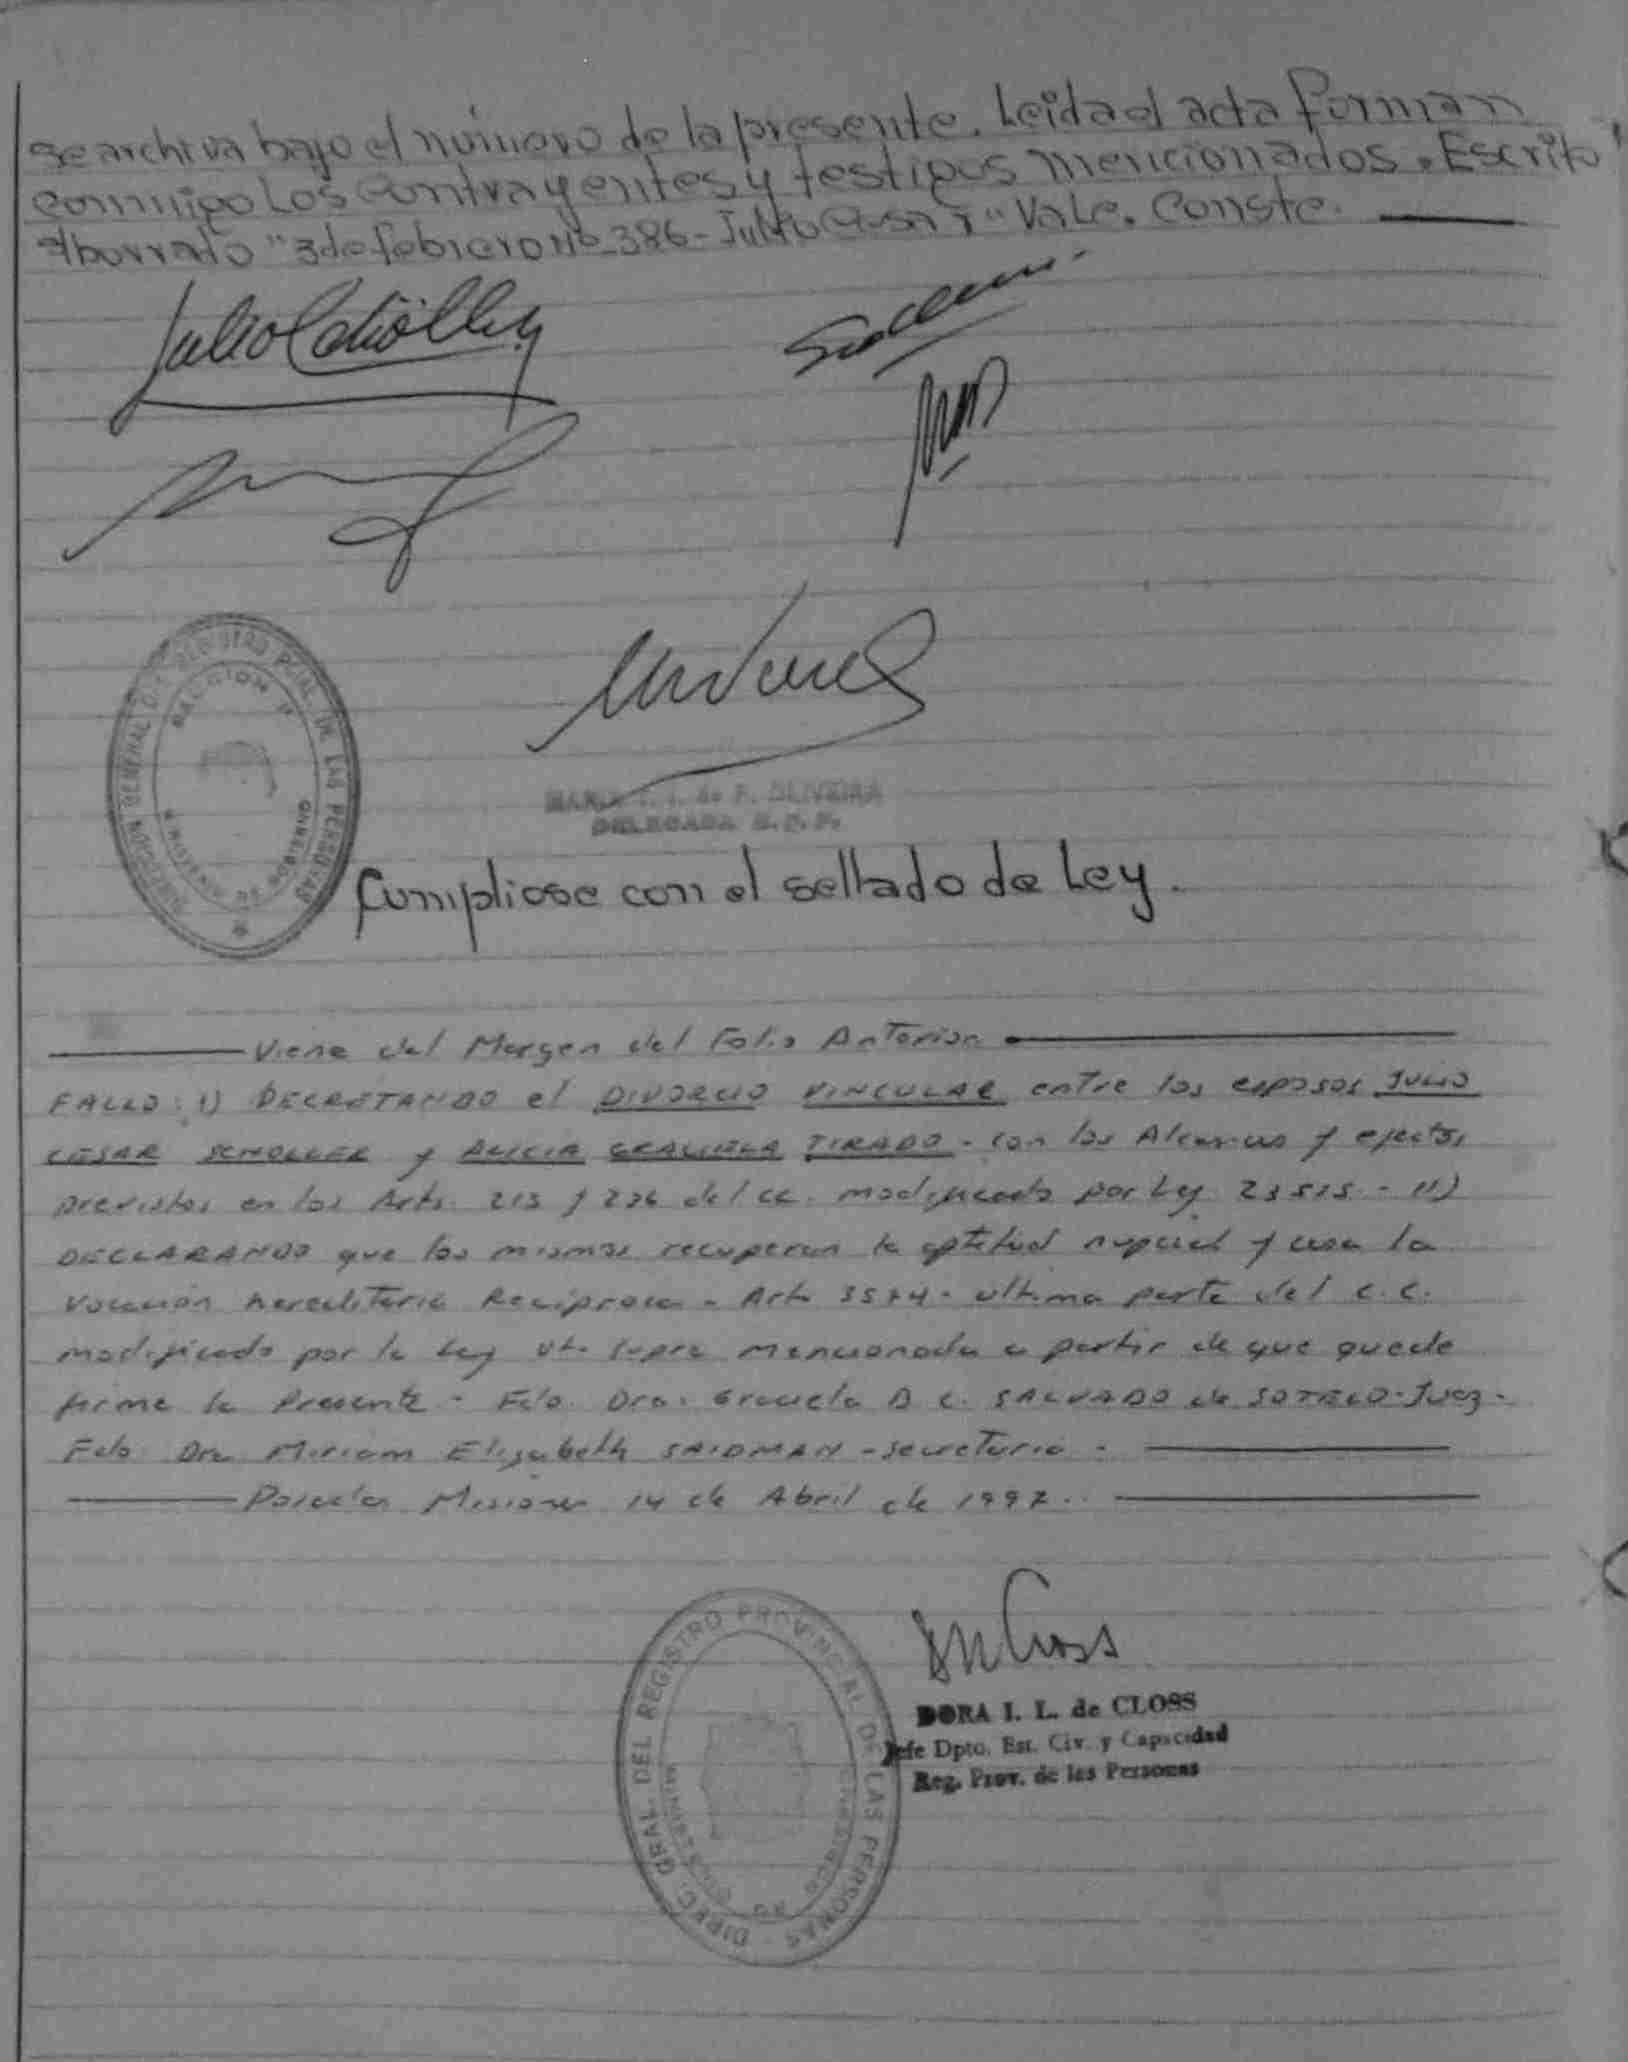 se archiva bajo el número de la presente. Leida el acta forman
conmigo los contrayentes y testigos mencionados. Escrito
"3 de febrero Nº 386 - Julio Cesar" Vale. Conste.
Julio C Schöller
DIRECCION GENERAL DEL REGISTRO PCIAL. DE LAS PERSONAS
MARIA de F. OLIVEIRA
DELEGADA R.P.P.
Cumpliose con el sellado de Ley.
Viene del Margen del Folio Anterior
FALLO: 1) DECRETANDO el DIVORCIO VINCULAR entre los esposos JULIO
CESAR SCHOLLER y ALICIA GRACIELA TIRADO - con los Alcances y efectos
previstos en los Arts. 213 y 236 del cc. modificado por Ley 23515. - 11)
DECLARANDO que los mismos recuperan la aptitud nupcial y cesa la
Vocación hereditaria Reciproca - Art. 3574 - ultima parte del c.c.
modificado por la Ley ut. supra mencionada a partir de que quede
firme la Presente - Fdo. Dra. Graciela D C. SALVADO de SOTELO - Juez -
Fdo Dra Miriam Elizabeth SAIDMAN - secretaria -
Posadas Misiones 14 de Abril de 1997..
DIREC. GRAL. DEL REGISTRO PROVINCIAL DE LAS PERSONAS
DORA I. L. de CLOSS
Jefe Dpto. Est. Civ. y Capacidad
Reg. Prov. de las Personas